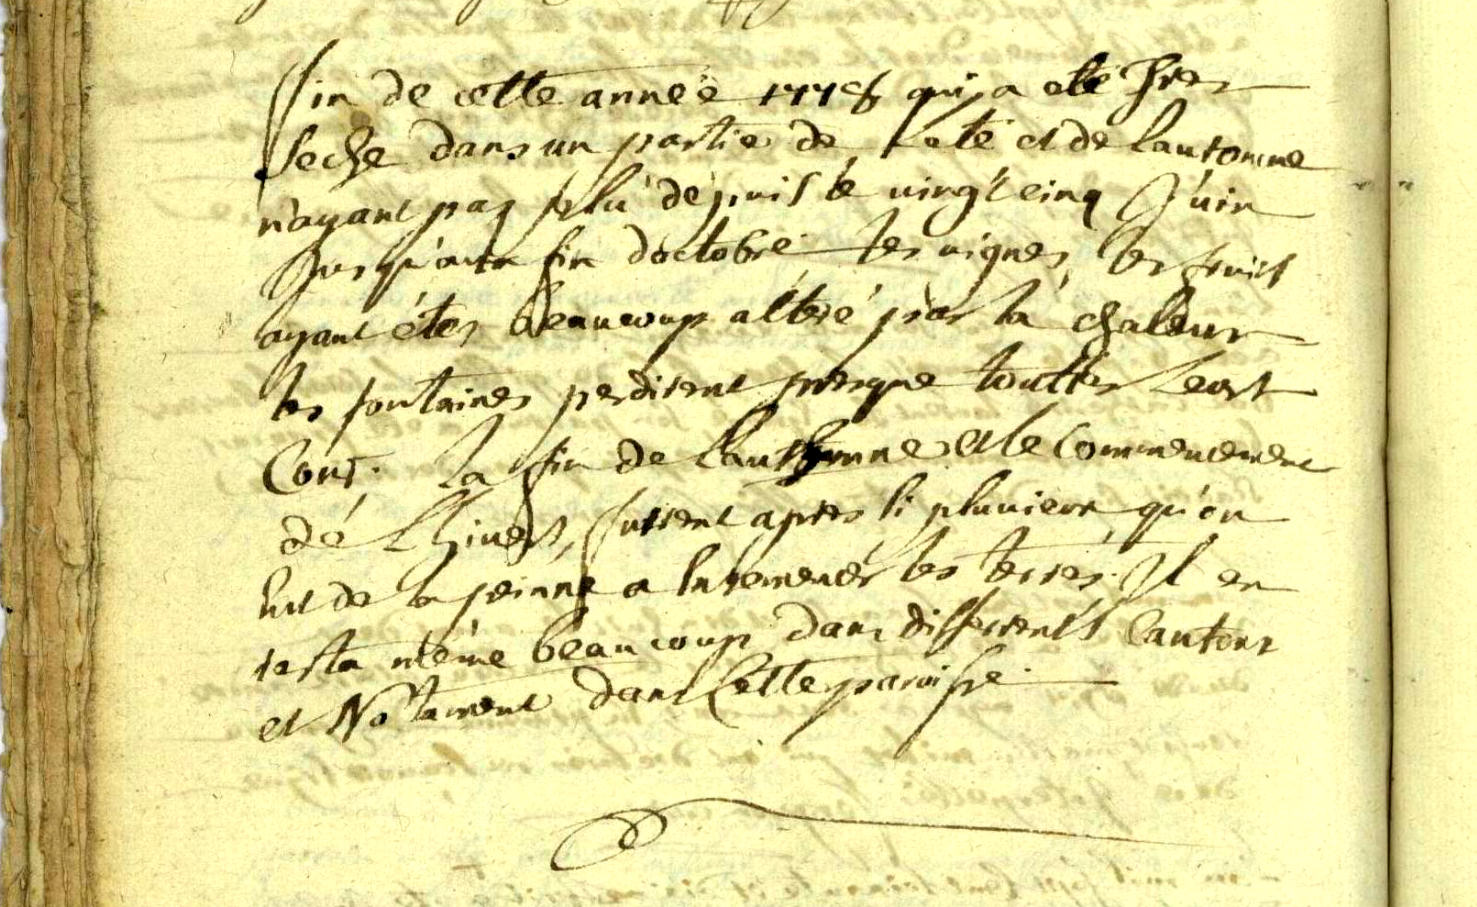 fin de cette année qui a eté tres
seche dans un partie de l'eté et de lautomne
n'ayant pas plu depuis le vingt cinq Juin
Jusqu'a la fin d'octobre les vignes, les fruits
ayant étes beaucoup alteré par la chaleur
les fontaines perdirent presque toutes leurs
Cours. la fin de lautomne et le Commencement
dé Lhiver, furent apres si pluvieux qu'on
hut de la peinne a ensemencer les terres. Il en
resta même beaucoup dans differents Cantons
et Notament dans Cette paroisse.